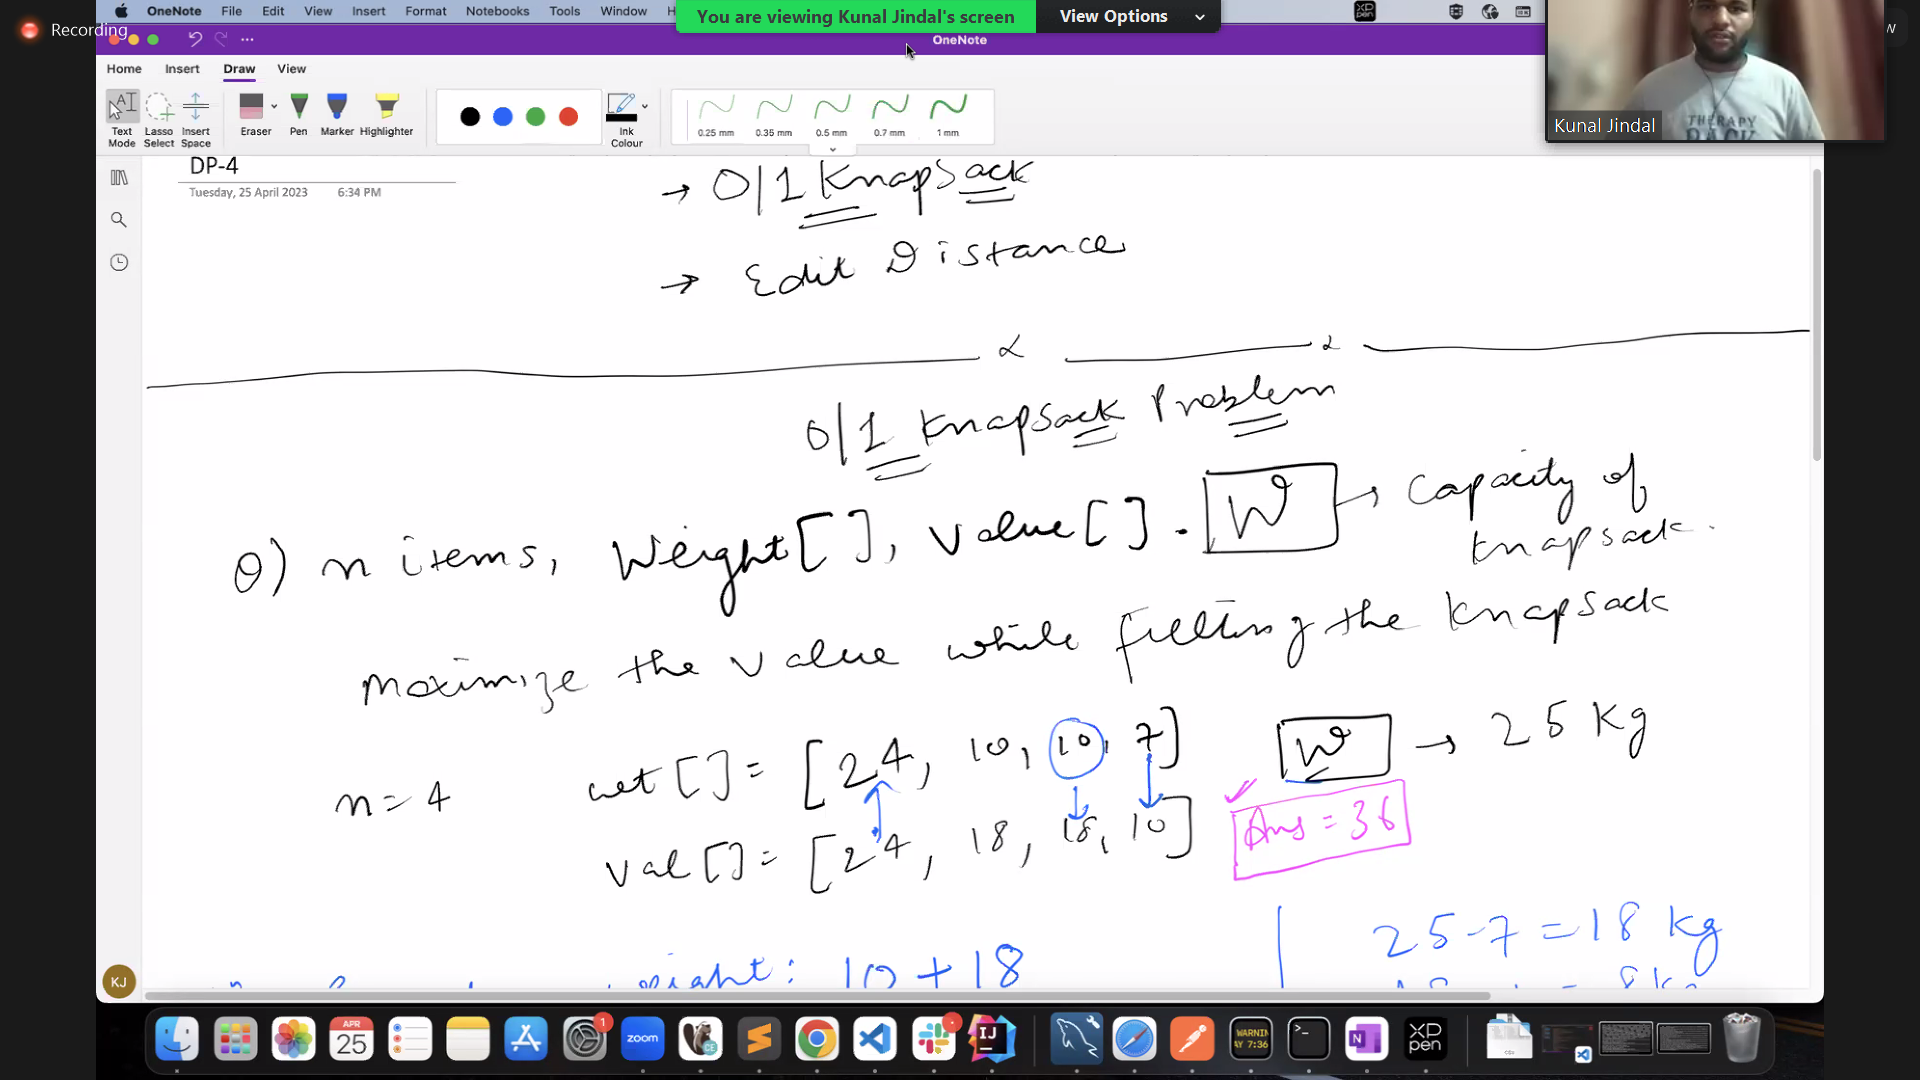 Recording
OneNote File Edit View Insert Format Notebooks Tools Window
You are viewing Kunal Jindal's screen View Options
OneNote
Home Insert Draw View
Text Mode
Lasso Select
Insert Space
Eraser
Pen
Marker
Highlighter
Ink Colour
0.25 mm 0.35 mm 0.5 mm 0.7 mm 1 mm
THERAPY
Kunal Jindal
DP-4
Tuesday, 25 April 2023 6:34 PM
→ 0/1 KnapSack
→ Edit Distance
0/1 KnapSack Problem
Q) n items, Weight[ ], Value[ ]. W → Capacity of
knapsack.
Maximize the value while filling the KnapSack
n=4 wt[]= [24, 10, 10, 7] W → 25 Kg
val[]= [24, 18, 18, 10] Ans = 36
25-7 = 18 kg
10 + 18
KJ
APR
25
1
zoom
CE
IJ
WARNIN
AY 7:36
N
XP
pen